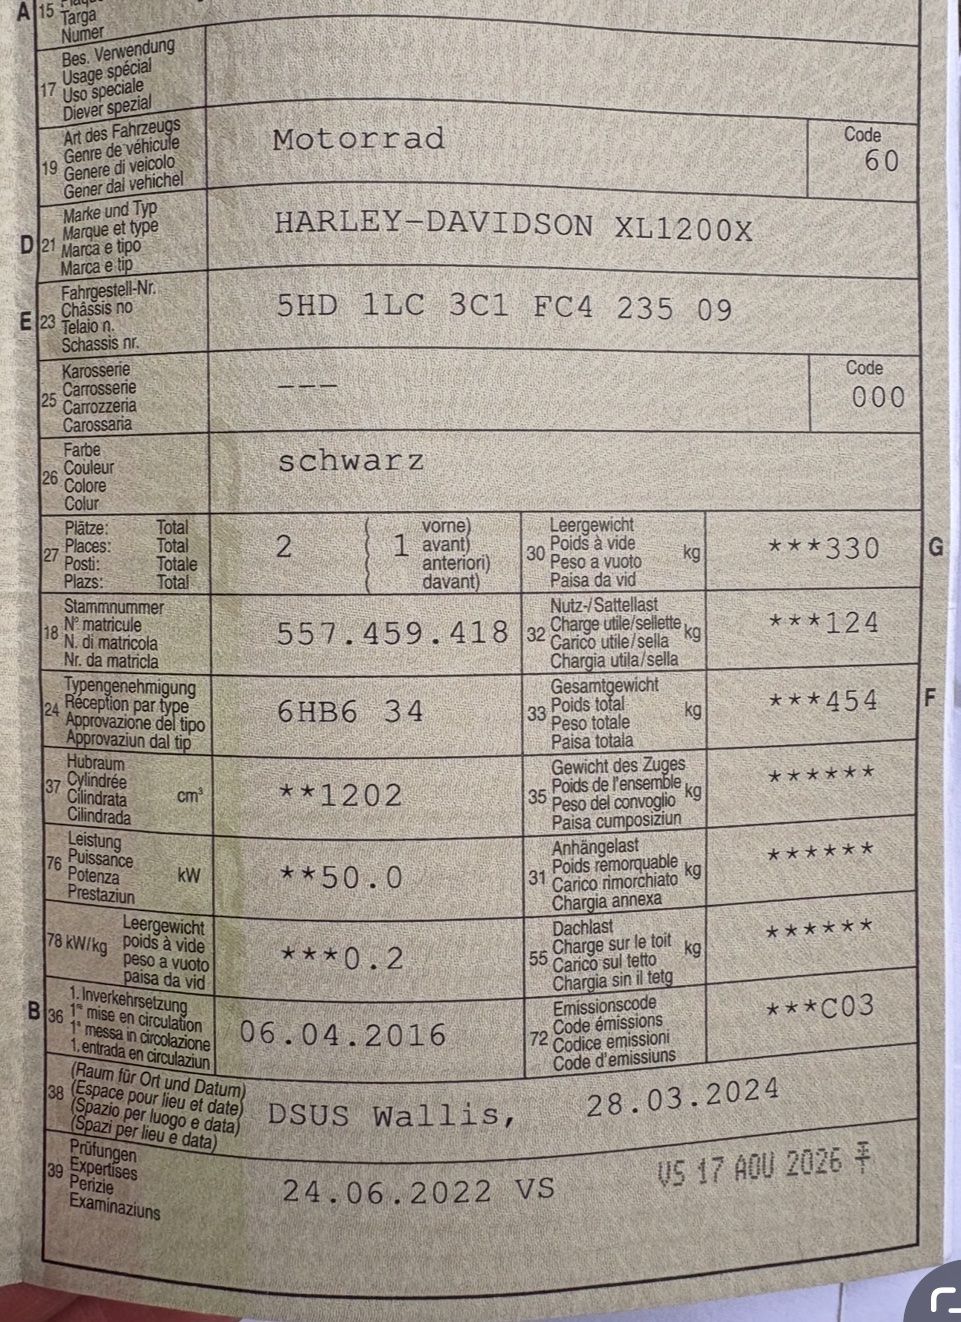 A 15
Targa
Numer
17 Bes. Verwendung
Usage spécial
Uso speciale
Diever spezial
19 Art des Fahrzeugs
Genre de véhicule
Genere di veicolo
Gener dal vehichel
Motorrad
Code
60
D 21 Marke und Typ
Marque et type
Marca e tipo
Marca e tip
HARLEY-DAVIDSON XL1200X
E 23 Fahrgestell-Nr.
Châssis no
Telaio n.
Schassis nr.
5HD 1LC 3C1 FC4 235 09
25 Karosserie
Carrosserie
Carrozzeria
Carossaria
---
Code
000
26 Farbe
Couleur
Colore
Colur
schwarz
27 Plätze: Total
Places: Total
Posti: Totale
Plazs: Total
2
( 1 vorne)
( avant)
( anteriori)
( davant)
30 Leergewicht
Poids à vide
Peso a vuoto
Paisa da vid
kg
***330
G
18 Stammnummer
N° matricule
N. di matricola
Nr. da matricla
557.459.418
32 Nutz-/Sattellast
Charge utile/sellette
Carico utile/sella
Chargia utila/sella
kg
***124
24 Typengenehmigung
Réception par type
Approvazione del tipo
Approvaziun dal tip
6HB6 34
33 Gesamtgewicht
Poids total
Peso totale
Paisa totala
kg
***454
F
37 Hubraum
Cylindrée
Cilindrata
Cilindrada
cm³
**1202
35 Gewicht des Zuges
Poids de l'ensemble
Peso del convoglio
Paisa cumposiziun
kg
******
76 Leistung
Puissance
Potenza
Prestaziun
kW
**50.0
31 Anhängelast
Poids remorquable
Carico rimorchiato
Chargia annexa
kg
******
78 kW/kg
Leergewicht
poids à vide
peso a vuoto
paisa da vid
***0.2
55 Dachlast
Charge sur le toit
Carico sul tetto
Chargia sin il tetg
kg
******
B 36 1. Inverkehrsetzung
1re mise en circulation
1a messa in circolazione
1. entrada en circulaziun
06.04.2016
72 Emissionscode
Code émissions
Codice emissioni
Code d'emissiuns
***C03
38 (Raum für Ort und Datum)
(Espace pour lieu et date)
(Spazio per luogo e data)
(Spazi per lieu e data)
DSUS Wallis, 28.03.2024
39 Prüfungen
Expertises
Perizie
Examinaziuns
24.06.2022 VS
VS 17 AOU 2026